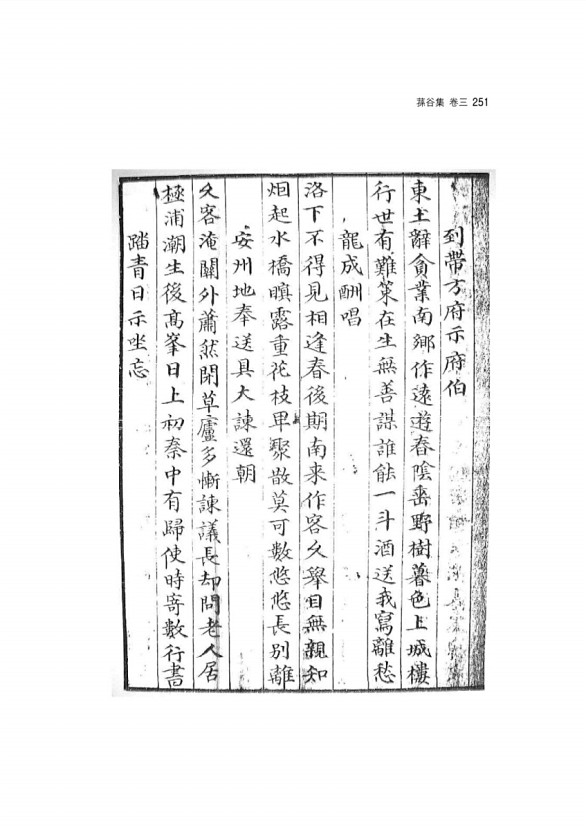 蓀谷集 卷三 251
到帶方府示府伯
東土辭貪業南鄉作遠遊春陰垂野樹暮色上城樓
行世有難策在生無善謀誰能一斗酒送我寫離愁
龍成酬唱
洛下不得見相逢春後期南来作客久擧目無親知
烟起水橋暝露重花枝卑聚散莫可數悠悠長別離
安州地奉送具大諫還朝
久客淹關外蕭然閉草廬多慚諫議長却問老人居
極浦潮生後高峯日上初秦中有歸使時寄數行書
踏青日示坐忘